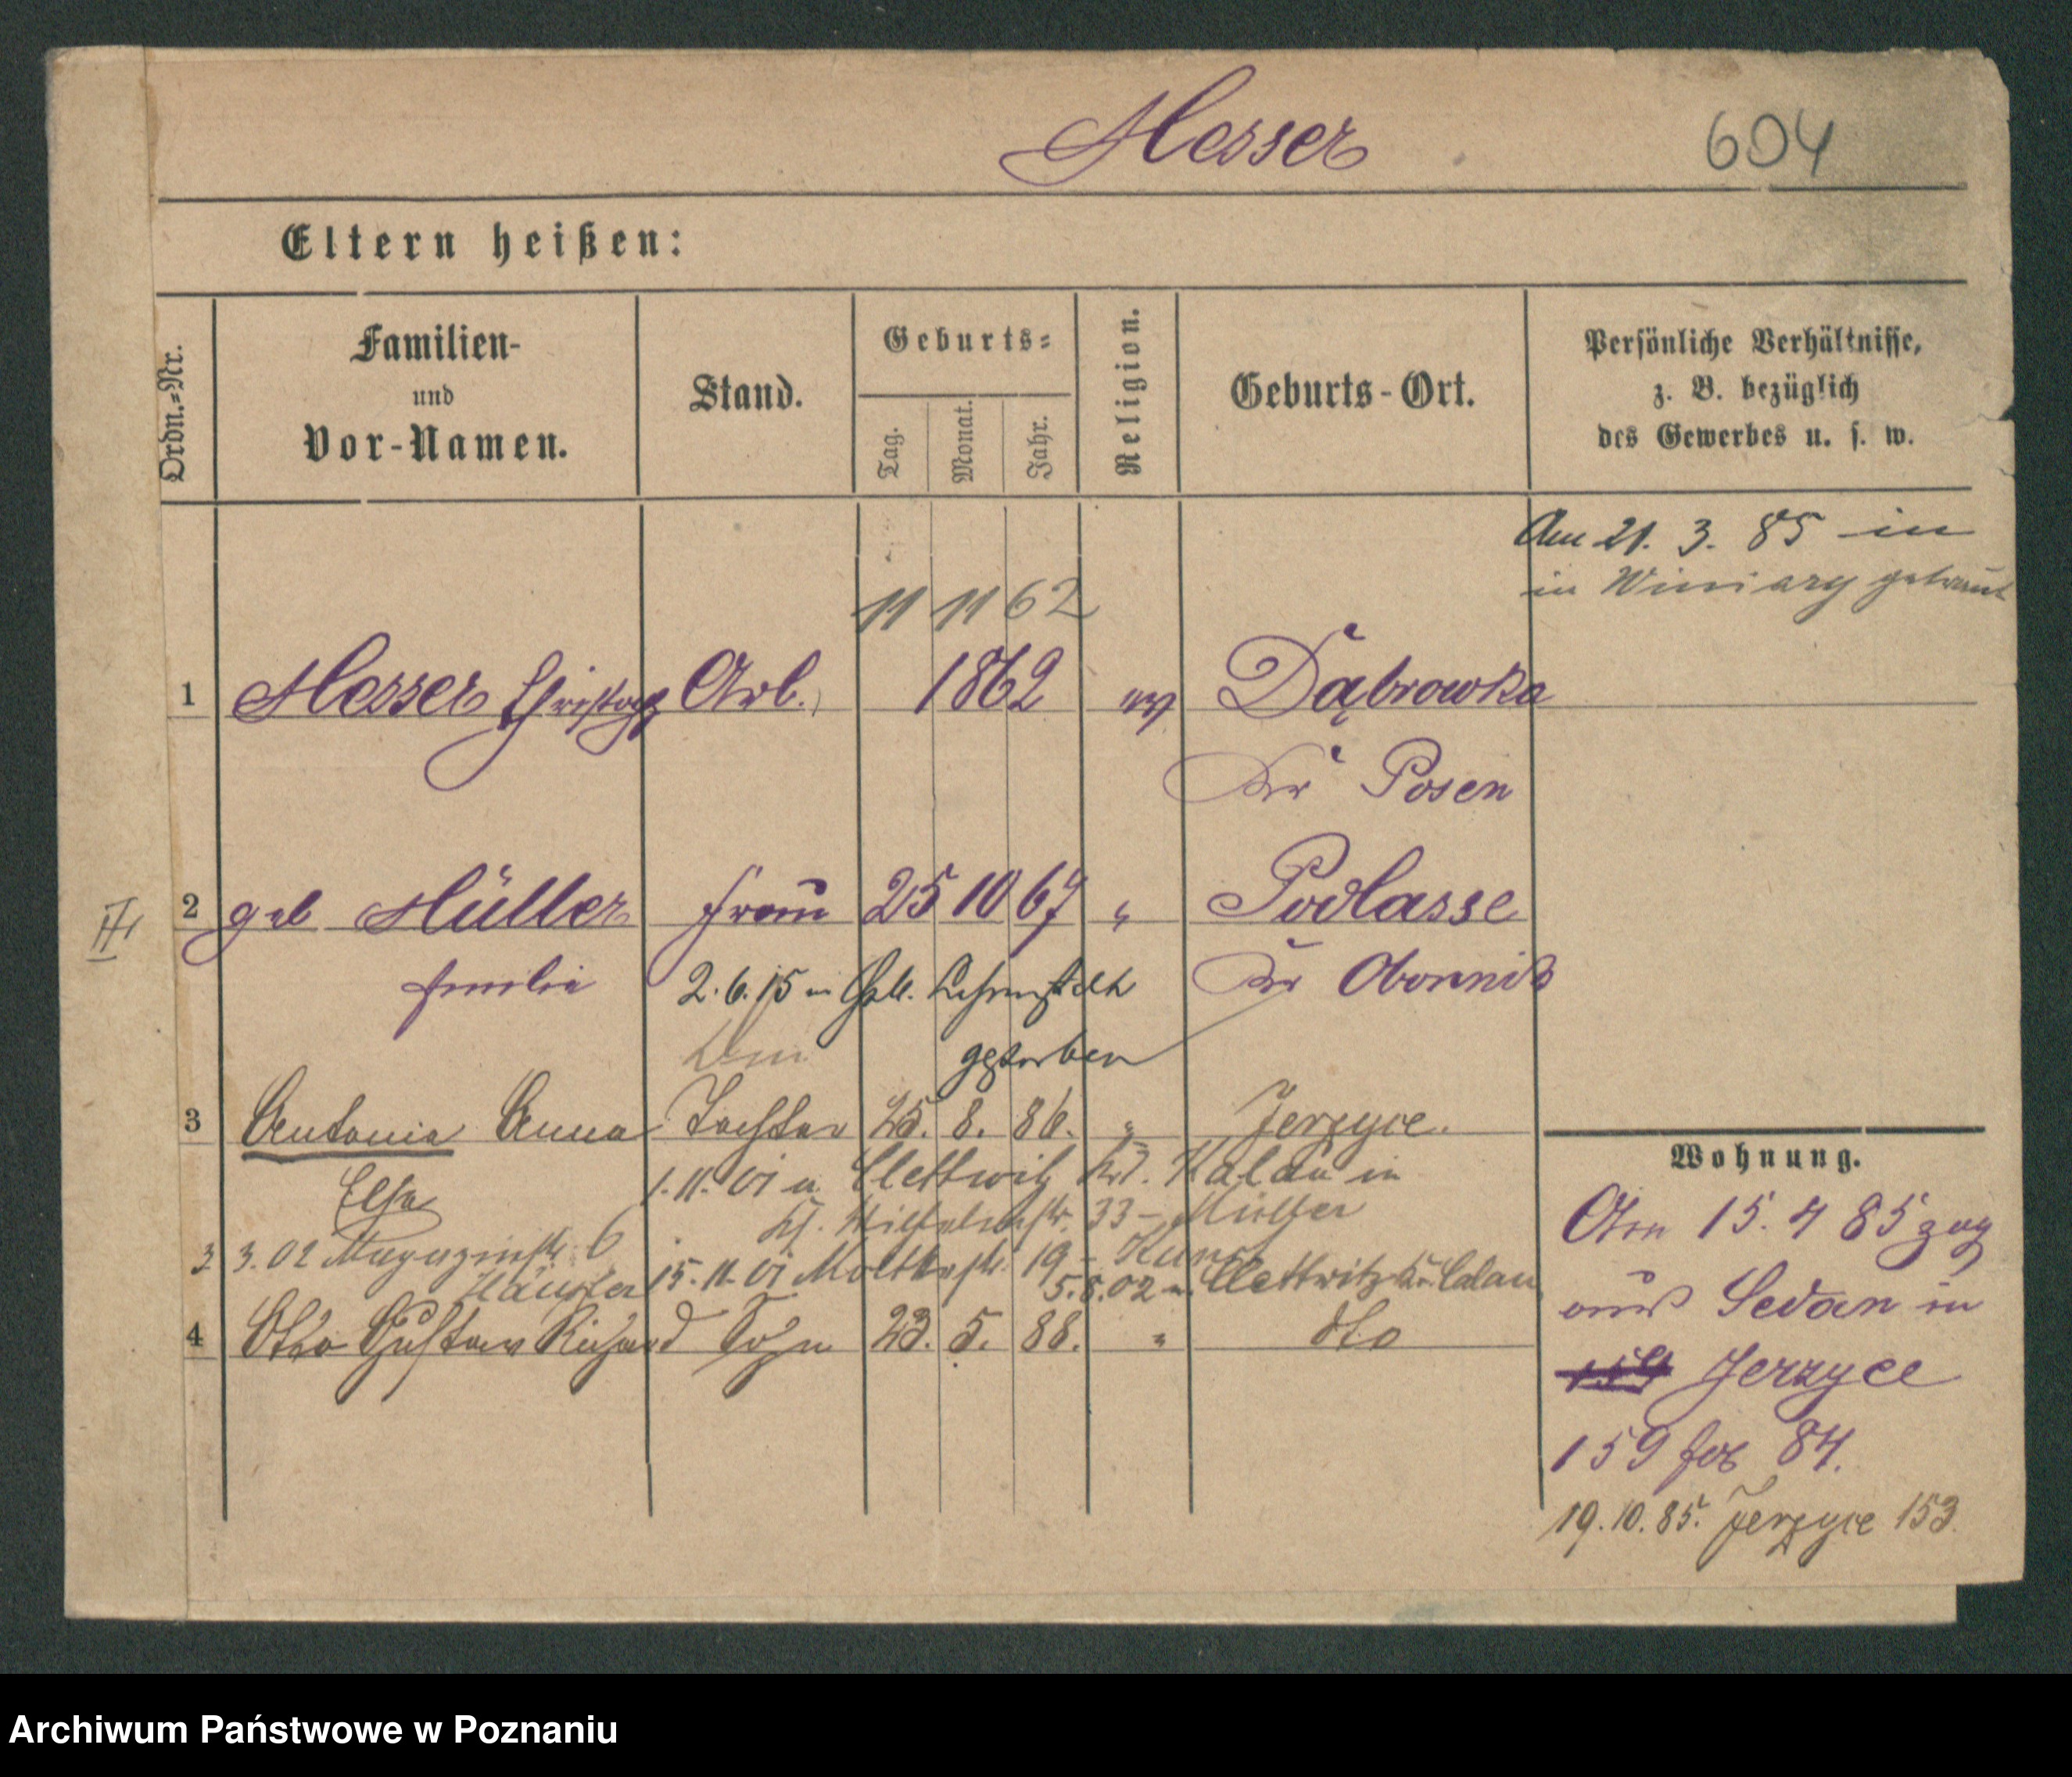 Messer 604
Eltern heißen:
Ordn.-Nr.
Familien-
und
Vor-Namen.
Stand.
Geburts-
Tag.
Monat.
Jahr.
Religion.
Geburts-Ort.
Persönliche Verhältnisse,
z. B. bezüglich
des Gewerbes u. s. w.
Am 21. 3. 85 in
in Winiary getraut
11 11 62
1 Messer Christoph Arb. 1862 ev Dąbrowka
Kr Posen
2 geb Müller Frau 25 10 67 " Podlasse
Emilie Kr Obornik
2. 6. 15 in
gestorben
II
3 Antonia Anna Tochter 25. 8. 86. " Jerzyce.
Elsa 1. 11. 01 n. Clettwitz Kr. Kalau in
33 - Müller
3. 3. 02 Magazinstr. 6 15. 11. 01 Moltkestr. 19 -
5. 8. 02 n. Clettwitz Kr. Calau
4 Otto Gustav Richard Sohn 23. 5. 88. " dto
Wohnung.
Am 15. 4 85 zog
aus Sedan in
Jerzyce
159 84.
19. 10. 85. Jerzyce 153
Archiwum Państwowe w Poznaniu